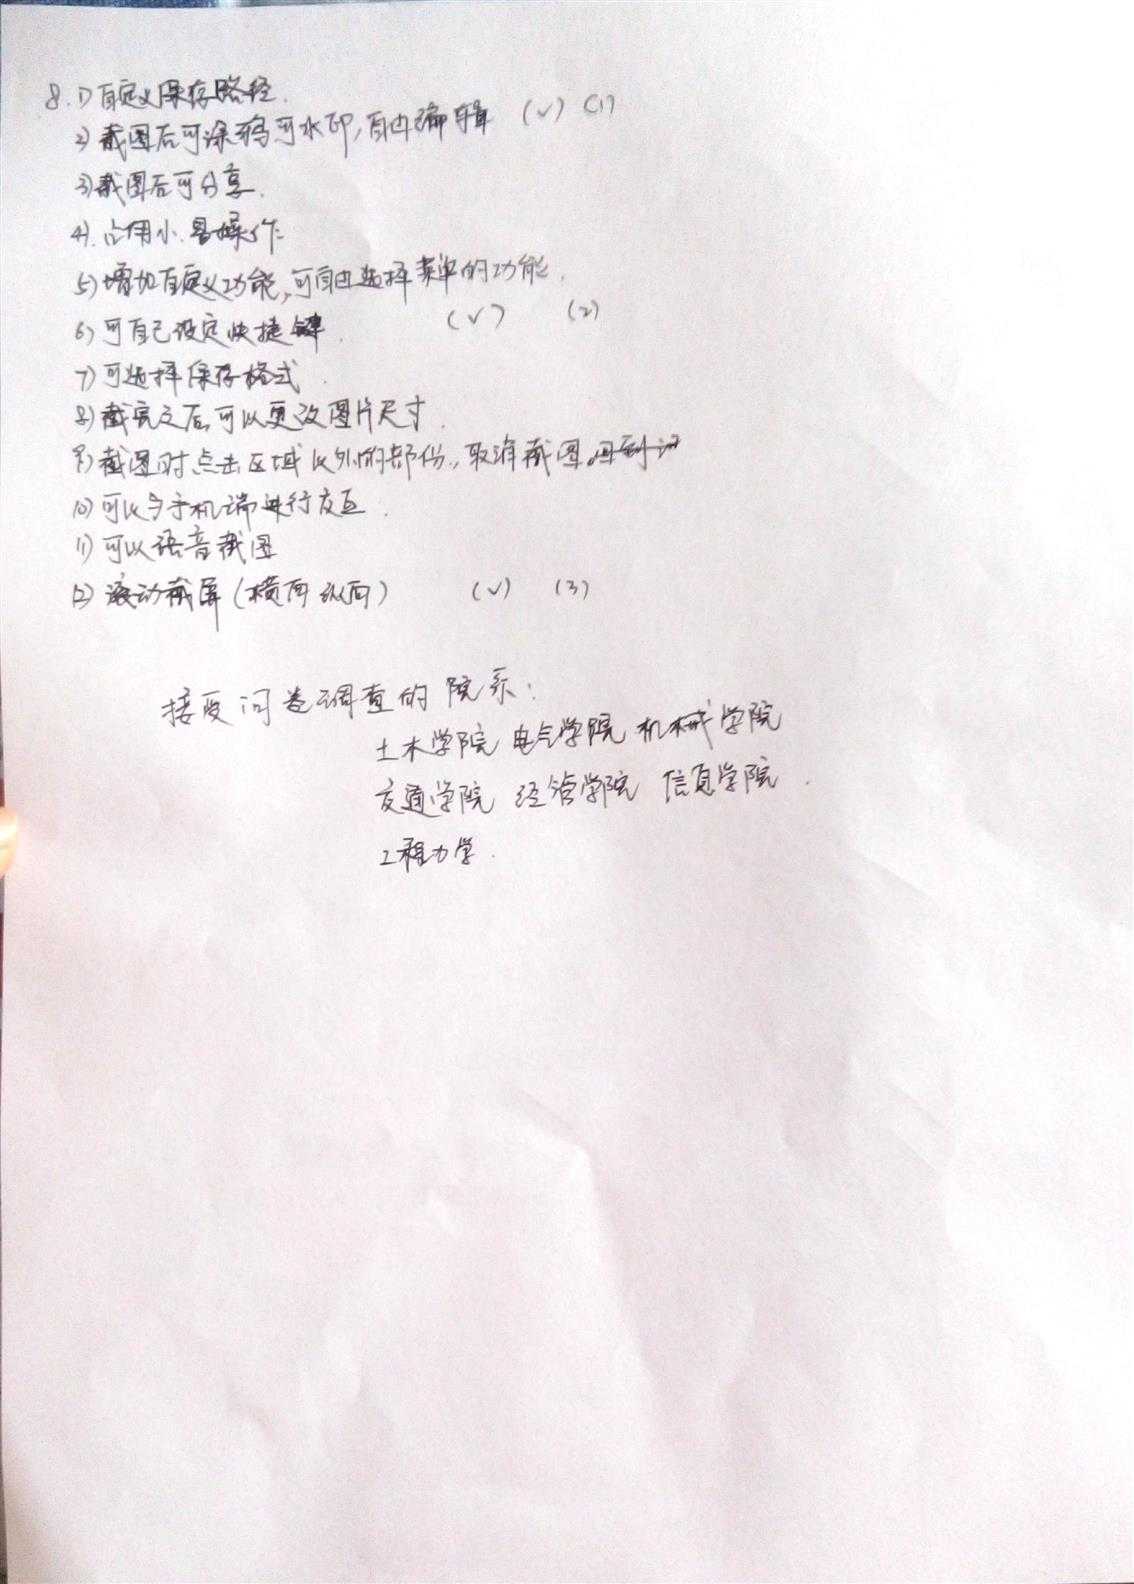 8. 1) 自定义保存路径.
2) 截图后可涂鸦可水印,自由编辑 (√) (1)
3) 截图后可分享.
4). 占用小.易操作
5) 增加自定义功能,可自由选择菜单的功能.
6) 可自己设定快捷键. (√) (2)
7) 可选择保存格式.
8) 截完之后,可以更改图片尺寸.
9) 截图时点击区域以外的部份,取消截图.
10) 可以与手机端进行交互.
11) 可以语音截图
12) 滚动截屏(横向纵向) (√) (3)
接受问卷调查的院系:
土木学院 电气学院 机械学院
交通学院 经管学院 信息学院.
工程力学.